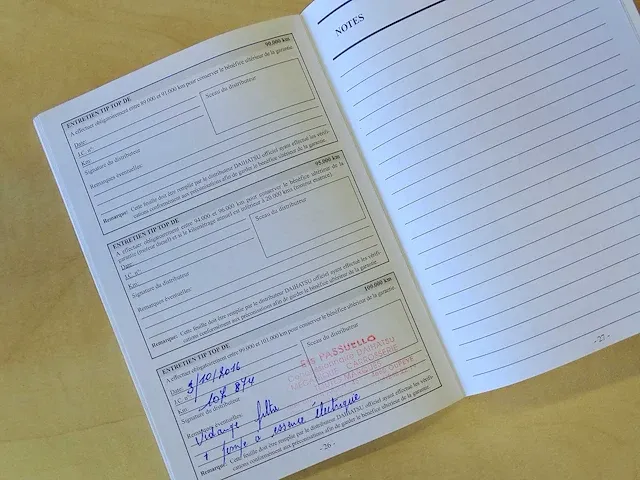 90.000 km
ENTRETIEN TIP TOP DE
A effectuer obligatoirement entre 89.000 et 91.000 km pour conserver le bénéfice ultérieur de la garantie.
Sceau du distributeur
Date:
I.C. n°:
Km:
Signature du distributeur
Remarques éventuelles:
Remarque: Cette feuille doit être remplie par le distributeur DAIHATSU officiel ayant effectué les vérifi-
cations conformément aux préconisations afin de garder le bénéfice ultérieur de la garantie.
95.000 km
ENTRETIEN TIP TOP DE
A effectuer obligatoirement entre 94.000 et 96.000 km pour conserver le bénéfice ultérieur de la
garantie (moteur diesel) et si le kilométrage annuel est inférieur à 20.000 kms (moteur essence).
Sceau du distributeur
Date:
I.C. n°:
Km:
Signature du distributeur
Remarques éventuelles:
Remarque: Cette feuille doit être remplie par le distributeur DAIHATSU officiel ayant effectué les vérifi-
cations conformément aux préconisations afin de garder le bénéfice ultérieur de la garantie.
100.000 km
ENTRETIEN TIP TOP DE
A effectuer obligatoirement entre 99.000 et 101.000 km pour conserver le bénéfice ultérieur de la garantie.
Sceau du distributeur
Ets PASSUELLO
Concessionnaire DAIHATSU
CARROSSERIE
Date: 3/10/2016
I.C. n°:
Km: 107 874
Signature du distributeur
Remarques éventuelles:
Vidange filtre
+ pompe à essence électrique
Remarque: Cette feuille doit être remplie par le distributeur DAIHATSU officiel ayant effectué les vérifi-
cations conformément aux préconisations afin de garder le bénéfice ultérieur de la garantie.
- 26 -
NOTES
- 27 -